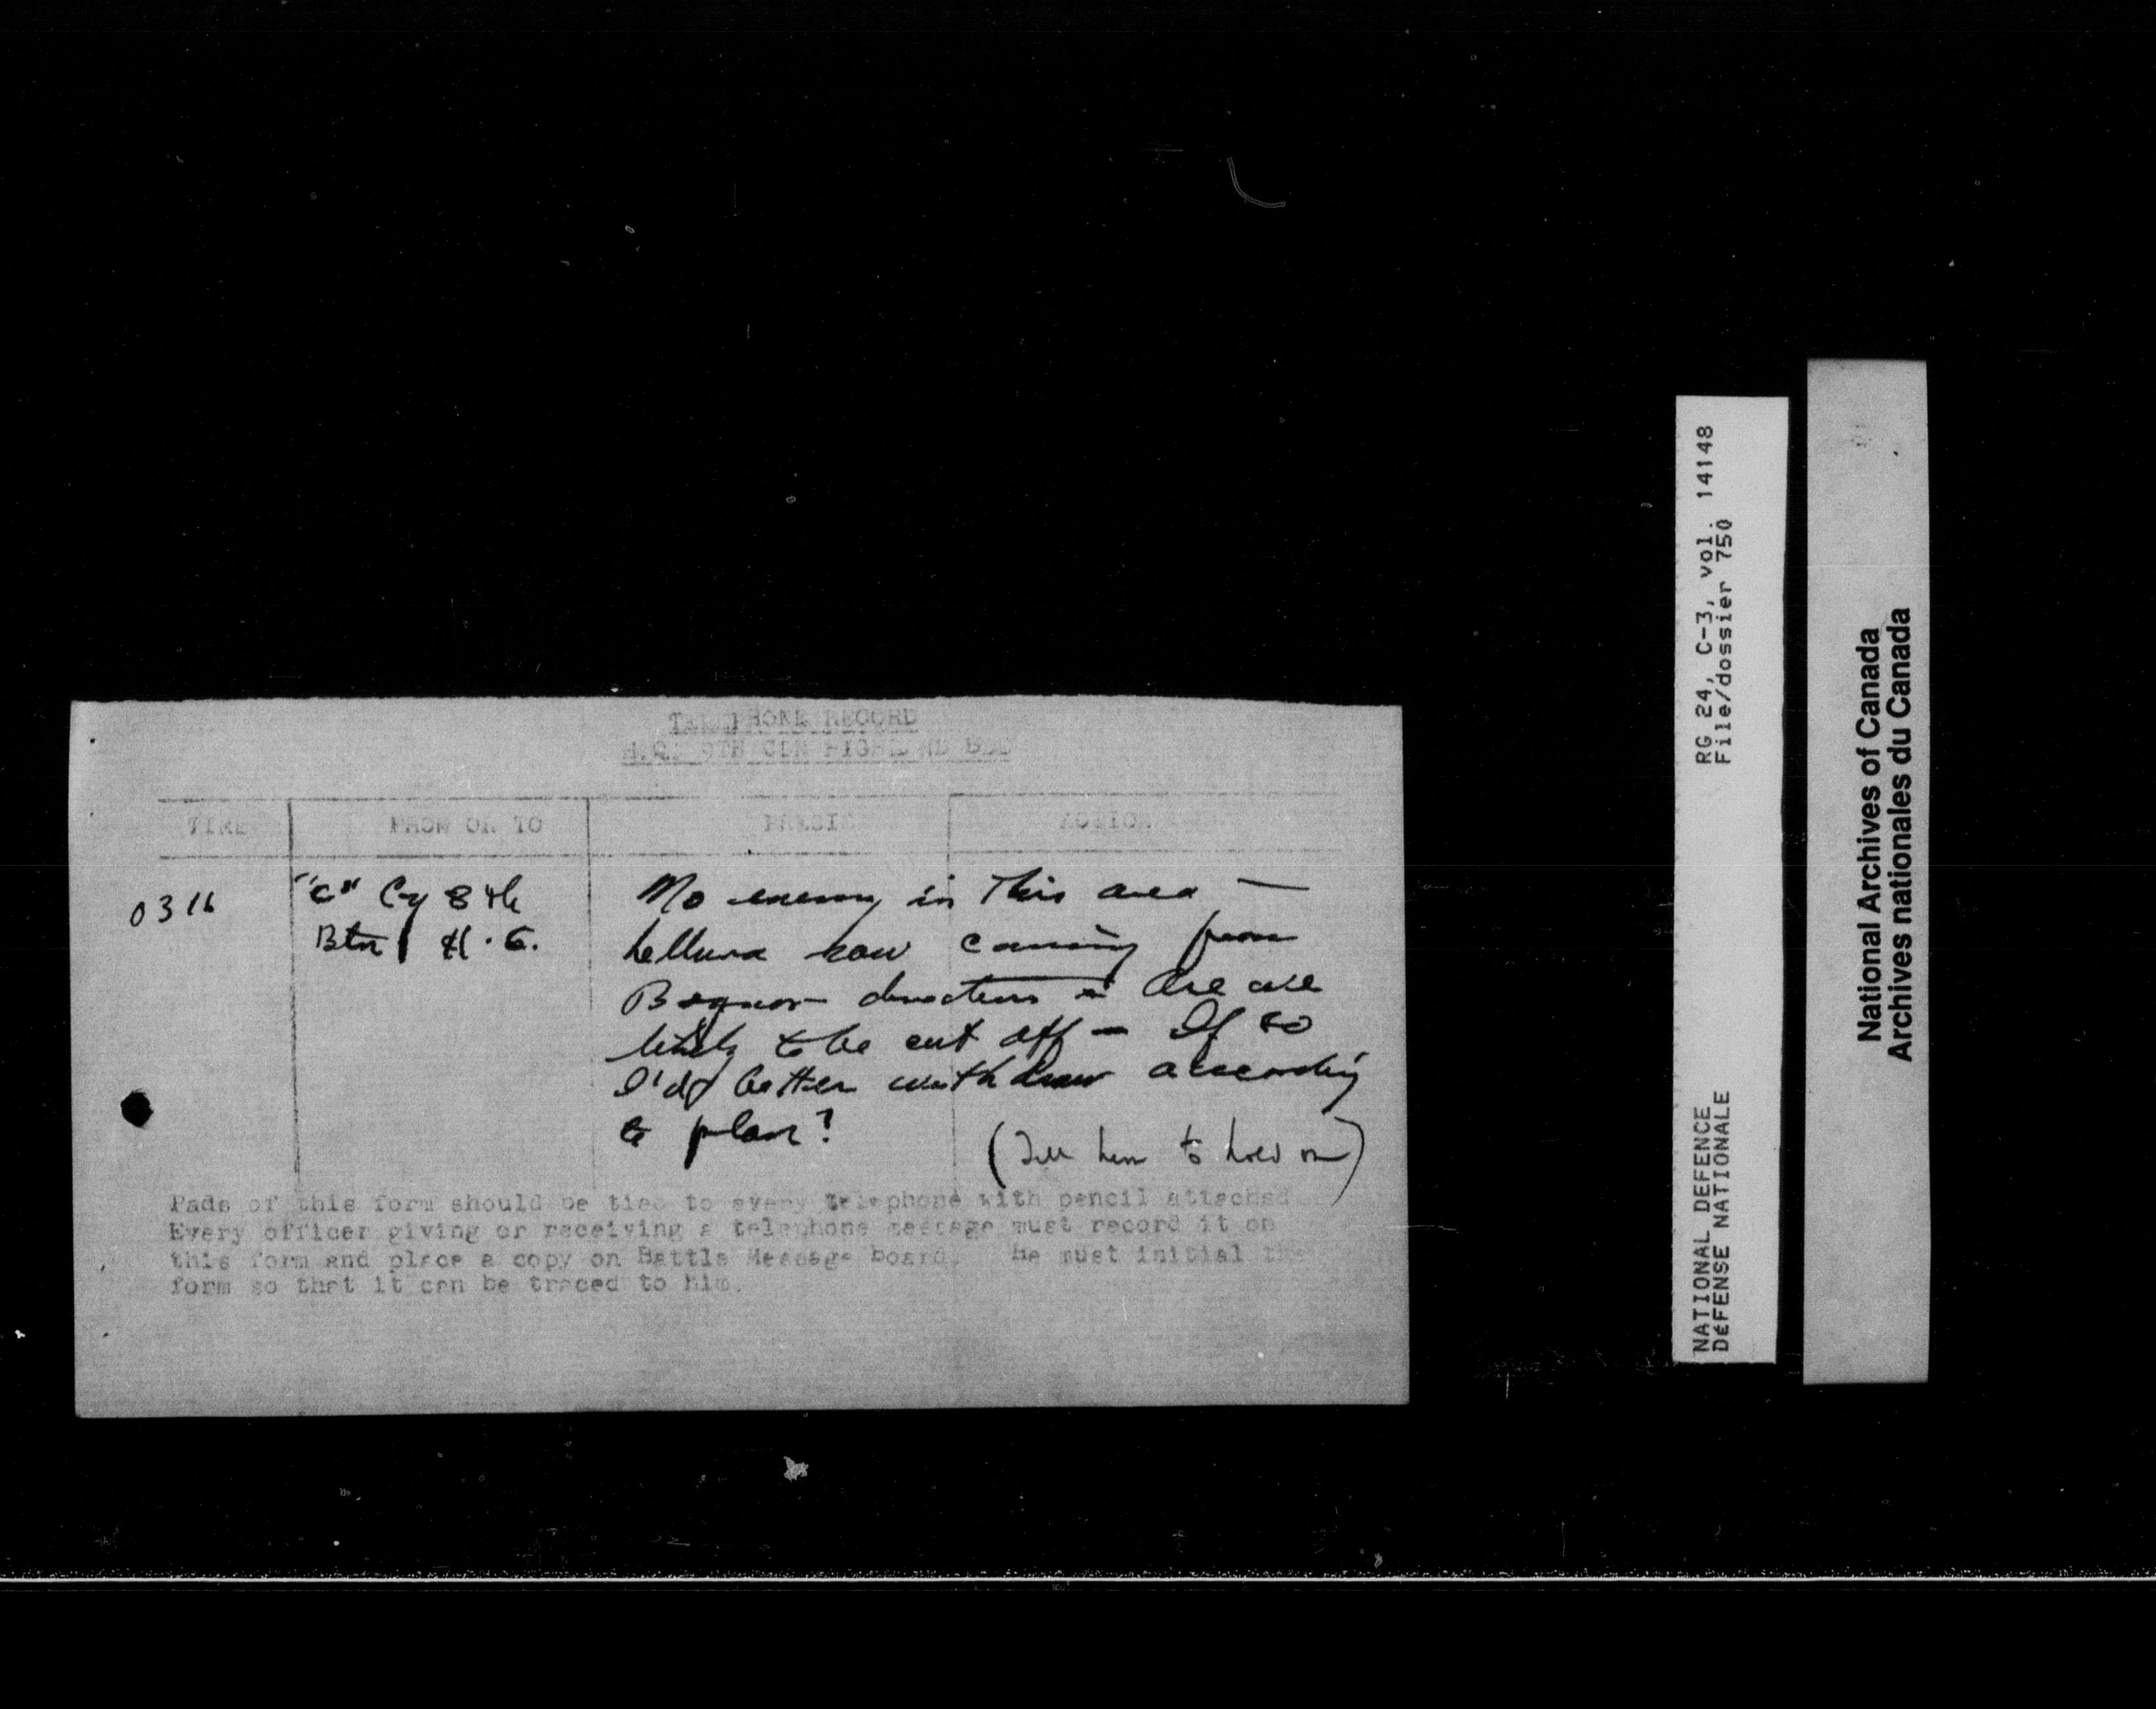 TELEPHONE RECORD
H.Q. 9TH CDN HIGHLAND BDE
TIME FROM OR TO PRECIS ACTION
0316 "C" Cy 8th No enemy in this area —
Btn H.G. helluva row coming from
Bognor direction — Are we
likely to be cut off — If so
I'd better withdraw according
to plan?
(Tell him to hold on)
Pads of this form should be tied to every telephone with pencil attached
Every officer giving or receiving a telephone message must record it on
this form and place a copy on Battle Message board. He must initial the
form so that it can be traced to him.
RG 24, C-3, vol. 14148
File/dossier 750
NATIONAL DEFENCE
DÉFENSE NATIONALE
National Archives of Canada
Archives nationales du Canada